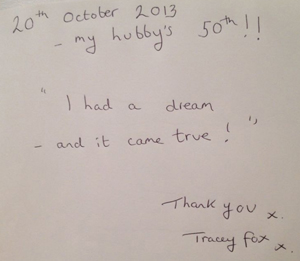 20th October 2013
- my hubby's 50th!!
" I had a dream
- and it came true! "
Thank you x.
Tracey Fox x.